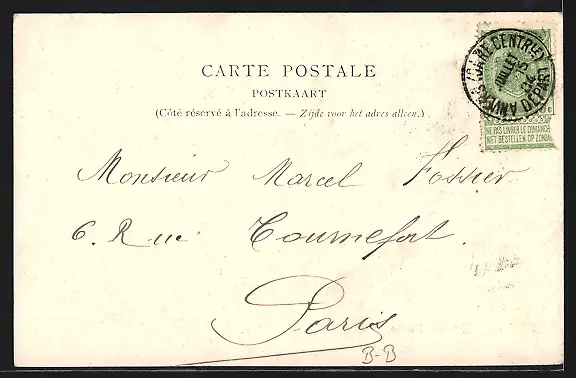 CARTE POSTALE
POSTKAART
(Côté réservé à l'adresse. — Zijde voor het adres alleen.)
ANVERS (GARE CENTRALE)
JUILLET
15
DEPART
NE PAS LIVRER LE DIMANCHE
NIET BESTELLEN OP ZONDAG
Monsieur Marcel Fossier
6. Rue Tournefort.
Paris
B-B